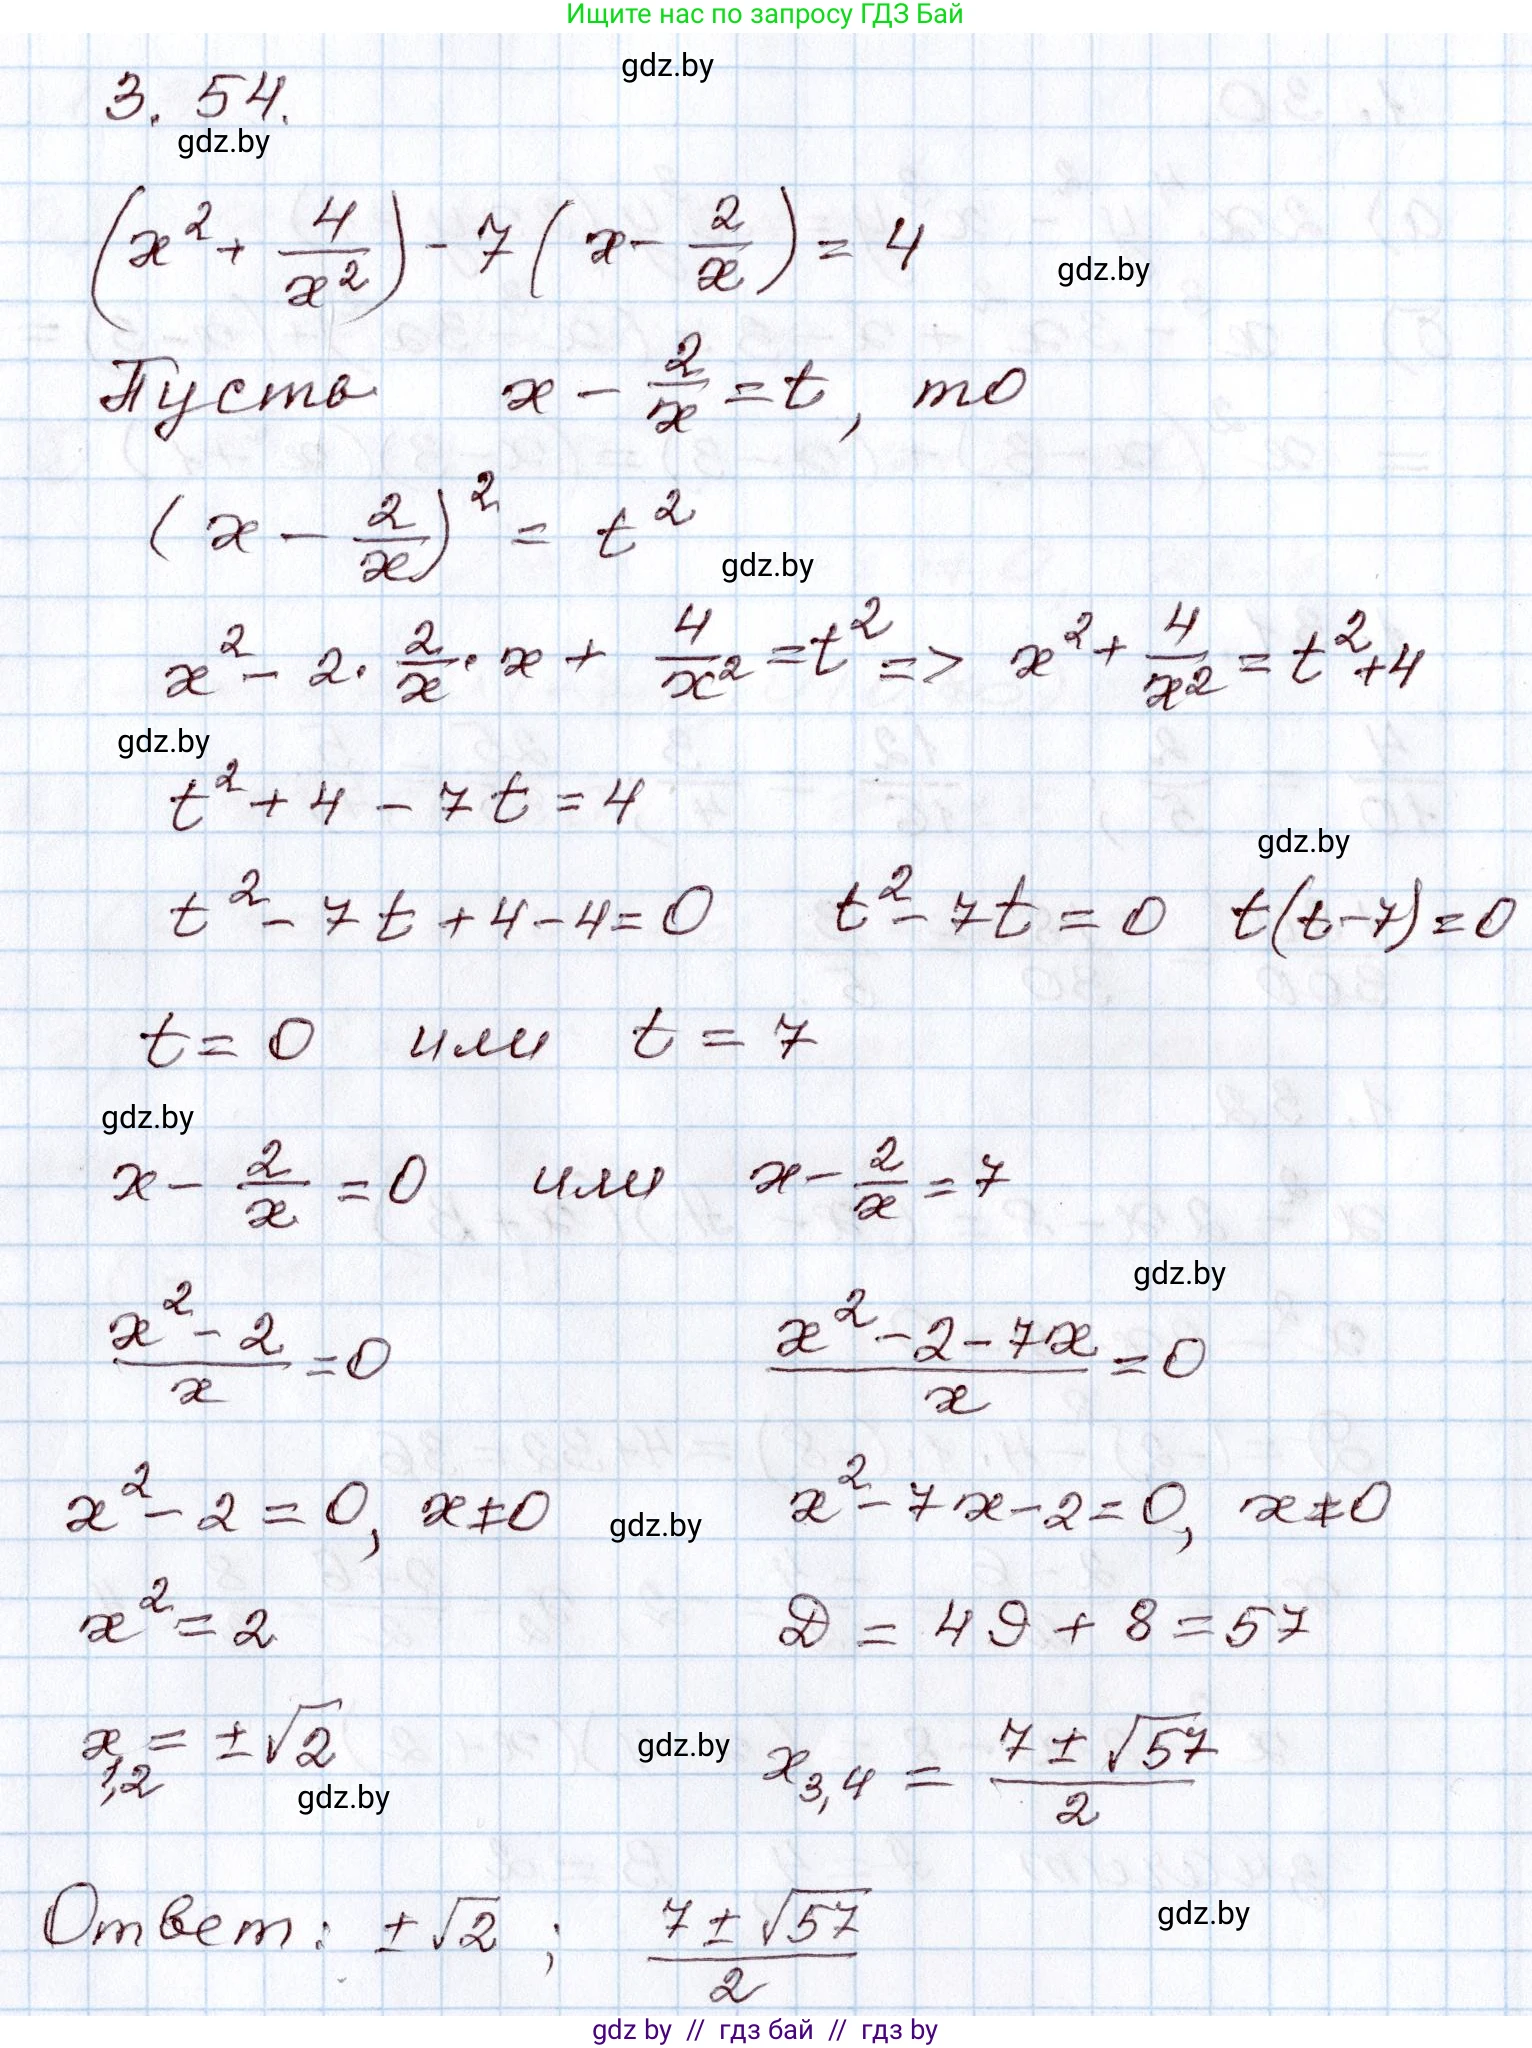 Ищите нас по запросу ГДЗ Бай
gdz.by
3. 54.
gdz.by
(x² + 4/x²) - 7(x - 2/x) = 4
gdz.by
Пусть x - 2/x = t, то
(x - 2/x)² = t²
gdz.by
x² - 2 · 2/x · x + 4/x² = t² => x² + 4/x² = t² + 4
gdz.by
t² + 4 - 7t = 4
gdz.by
t² - 7t + 4 - 4 = 0 t² - 7t = 0 t(t - 7) = 0
t = 0 или t = 7
gdz.by
x - 2/x = 0 или x - 2/x = 7
gdz.by
(x² - 2)/x = 0 (x² - 2 - 7x)/x = 0
x² - 2 = 0, x ≠ 0 gdz.by x² - 7x - 2 = 0, x ≠ 0
x² = 2 D = 49 + 8 = 57
x₁,₂ = ±√2 gdz.by x₃,₄ = (7 ± √57)/2
gdz.by
Ответ: ±√2; (7 ± √57)/2
gdz.by
gdz by // гдз бай // гдз by